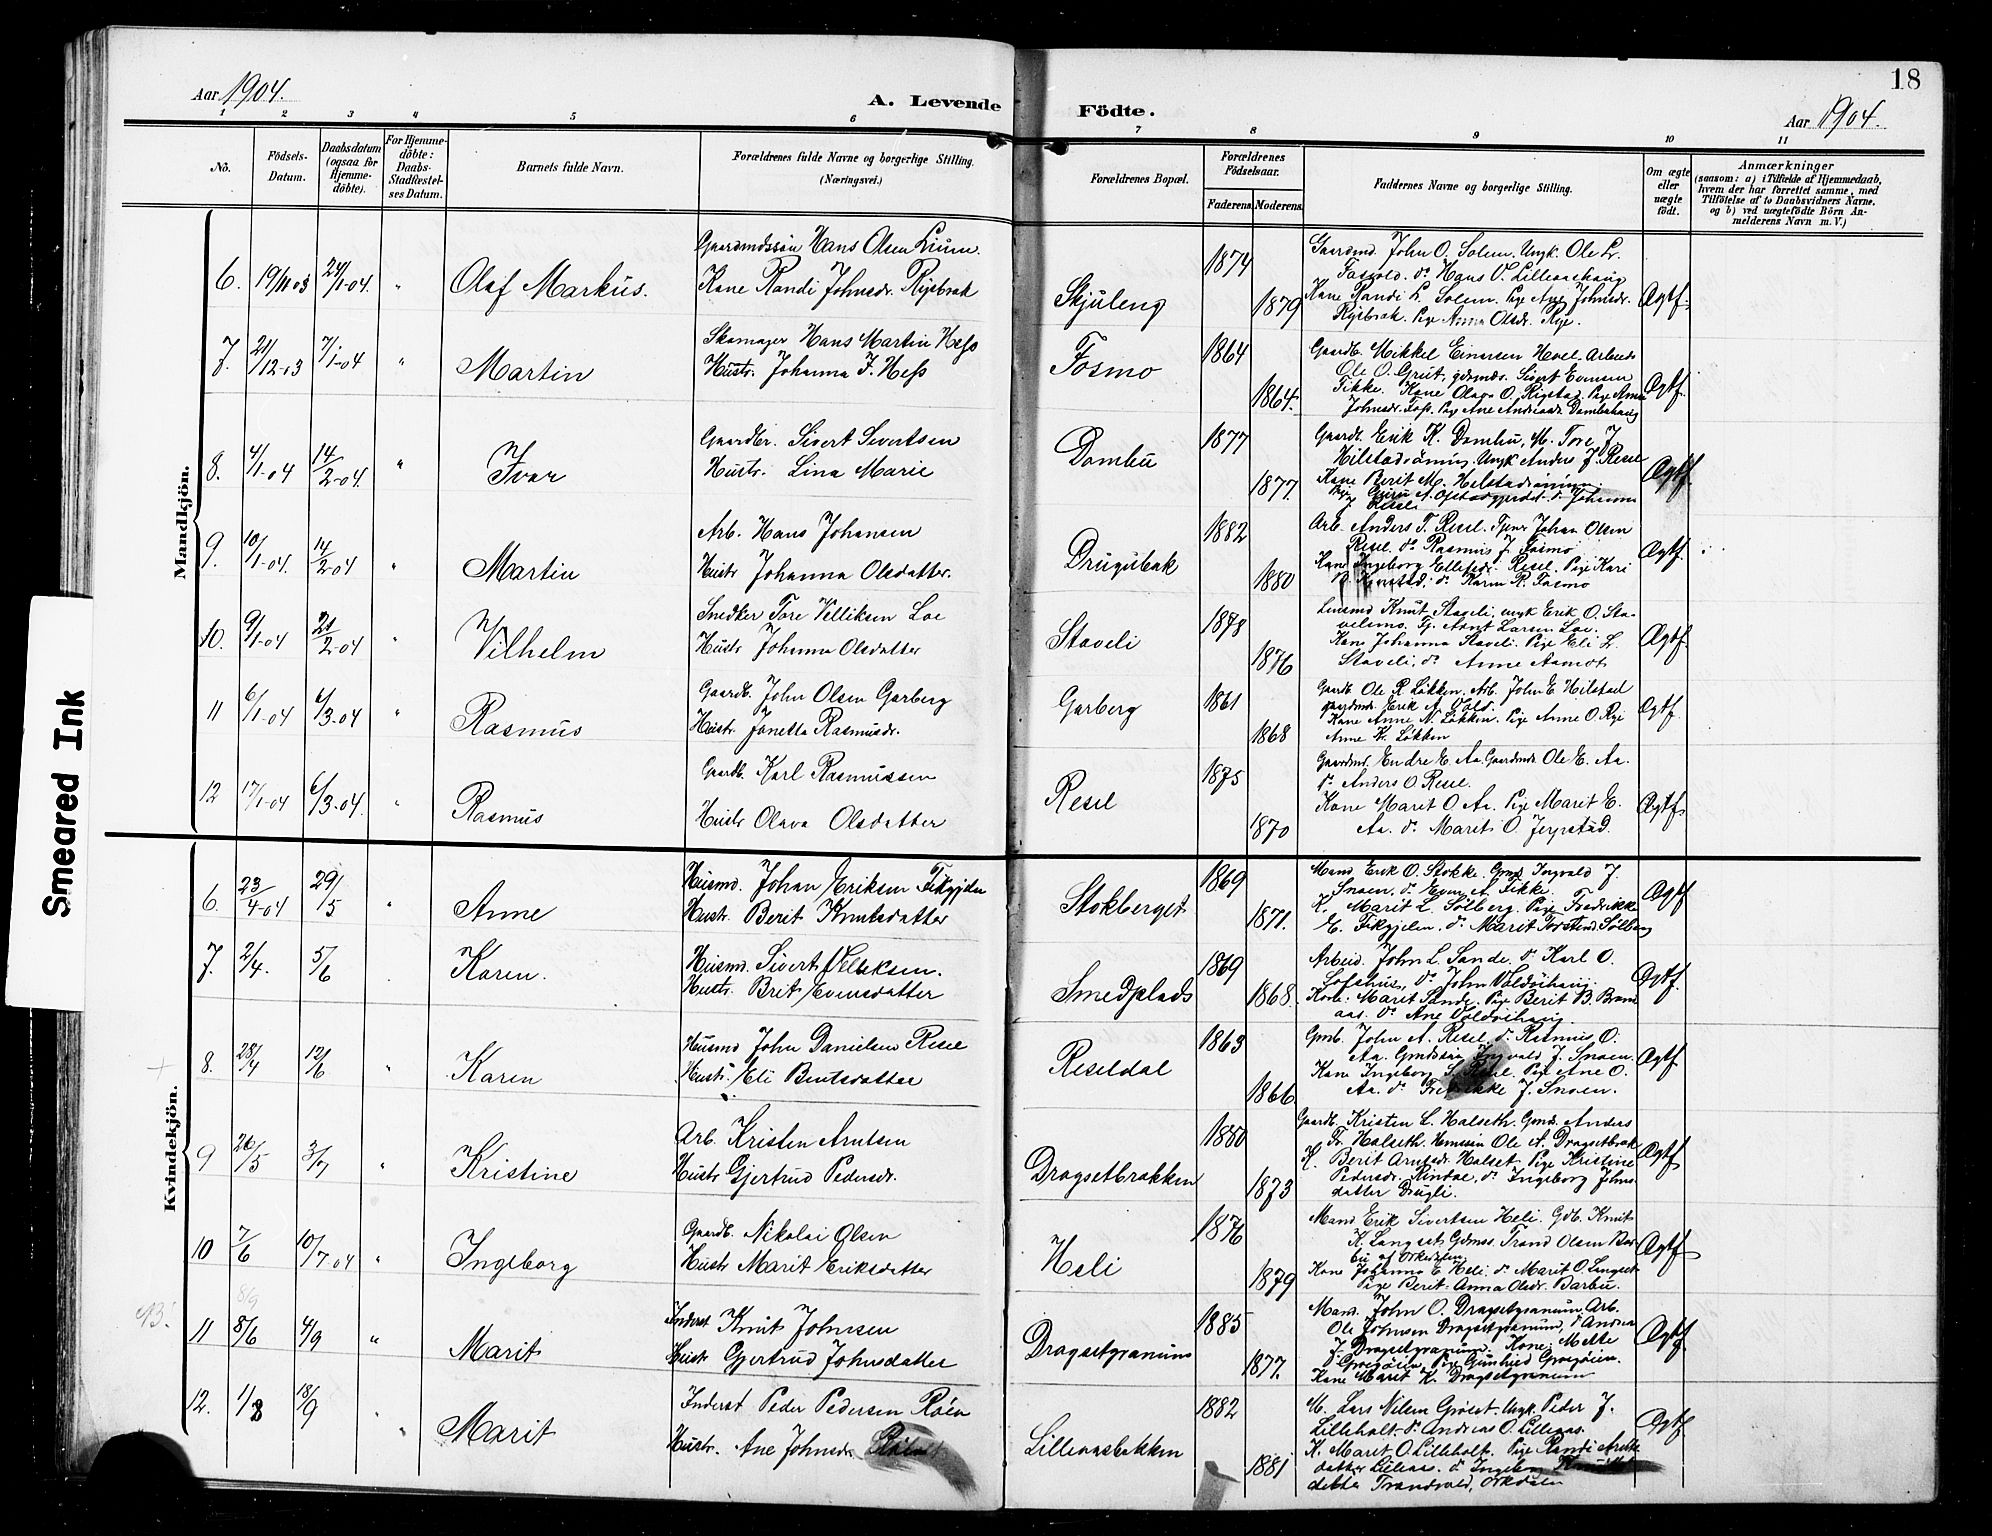 18
Aar 1904.
A. Levende
Födte.
Aar 1904.
1 2 3 4 5 6 7 8 9 10 11
No.
Födsels-Datum.
Daabsdatum (ogsaa for Hjemme-döbte).
For Hjemme-döbte: Daabs-Stadfæstel-ses Datum.
Barnets fulde Navn.
Forældrenes fulde Navne og borgerlige Stilling.
(Næringsvei.)
Forældrenes Bopæl.
Forældrenes Födselsaar.
Faderens Moderens
Faddernes Navne og borgerlige Stilling.
Om ægte eller uægte födt.
Anmærkninger
(saasom: a) i Tilfælde af Hjemmedaab,
hvem der har forrettet samme, med
Tilföielse af to Daabsvidners Navne,
og b) ved uægtefödte Börn An-
melderens Navn m. V.)
Mandkjön.
6. 19/11 03 24/1-04. " Olaf Markus.
Gaardmdssön Hans Olsen Lium
Kone Randi Johnsdr. Ryebrak
Skjuleng 1874 1879
Gaardmd. John O. Solem. Ungk. Ole L.
Kone Randi L. Solem. Pige Ane Johnsdr.
Ryebrak. Pige Anna Olsdr. Rye.
Ægtf.
7. 21/12-03 7/1-04 " Martin
Skomager Hans Martin Hess
Hustr. Johanna F. Hess
Fosmo 1864 1864.
Gaardb. Mikkel Einarsen Hovel. Arbeids
Ole O. Grut, gdmds. Sivert Evensen
Fikke. Kone Olava O. Rigstad. Pige Anne
Johnsdr. Foss. Pige Ane Andrasdr Dombuhaug
Ægtf.
8. 4/1-04 14/2-04. " Ivar
Gaardbr. Sivert Sivertsen
Hustr. Lina Marie
Dombu 1877 1877.
Gaardb. Erik K. Dombu, M. Tore J.
Ungk Anders J. Resel
Kone Berit M.
Ægtf.
9. 10/1-04. 14/2-04 " Martin
Arb. Hans Johansen
Hustr Johanna Olsdatter.
Drugubak 1882 1880
Arb. Anders T. Resel. Tjener Johan Olsen
Resel. do Rasmus J. Fosmo
Kone Ingeborg Ellefsdr. Resel. Pige Kari
do Karen R. Fosmo
Ægtf.
10. 9/1-04 21/2-04 " Vilhelm
Snedker Tore Velliksen Loe
Hustr Johanna Olsdatter
Staveli 1878 1876
Lensmd Knut Staveli, ungk Erik O. Sta-
velsmo. Tj. Arnt Larsen Loe.
Kone Johanna Staveli. Pige Eli L.
Staveli, do Anne Aamot
Ægtf.
11 6/1-04 6/3-04 " Rasmus
Gaardb. John Olsen Garberg
Hustr. Jonetta Rasmusdr.
Garberg 1861 1868
Gaardb Ole R Løkken. Arb. John E Hilstad
gaardmds Erik A Vold.
Kone Anne N. Løkken. Pige Anne O. Rye
Anne K. Løkken
Ægtf.
12 17/1-04 6/3-04. " Rasmus
Gaardb. Karl Rasmussen
Hustr Olava Olsdatter
Resel 1875 1870
Gaardmd. Endre E. Aa. Gaardmds Ole E. Aa.
do Anders O Resel.
Kone Marit O Aa. Pige Marit E.
Aa. do Marit O. Jerpstad.
Ægtf.
Kvindekjön.
6. 23/4-04 29/5 " Anne
Husmd. Johan Eriksen Fikgjelen
Hustr. Berit Knutsdatter
Stokberget 1869 1871.
Mand Erik O. Stokke. Gmds Ingvald J.
Snoen, do Even A. Fikke.
K. Marit L. Sølberg. Pige Fredrikke
E. Fikgjelen. do Marit Torstensd. Sølberg
Ægtf
7. 2/4. 5/6 Karen.
Husmd. Sivert Velliksen.
Hustr. Brit Evensdatter
Smedplads 1869 1868.
Arbeid. John L. Sande. do Karl O.
do John Voldöihaug.
Kone. Marit Sande. Pige Berit B. Bran-
aas. do Ane Voldöihaug.
Ægtf.
8. 28/4 12/6 " Karen
Husmd John Danielsen Resel
Hustr. Eli Bentsdatter
Reseldal 1863 1866
Gmb. John A. Resel. do Rasmus O.
Aa. Gmdssön Ingvald J. Snoen.
Kone Ingeborg S. Resel. Pige Ane O.
Aa. do Fredrikke J. Snoen.
Ægtf.
9 26/5 3/7 " Kristine
Arb. Kristen Arntsen
Hustr Gjertrud Pedersdr.
Dragsetbrækken 1880 1873
Gaardb. Kristen L. Halseth. Gmds. Anders
Tr. Halseth. Hmssön Ole A. Dragsetbrak
K. Berit Arntsdr. Halset. Pige Kristine
Pedersdr. Rindal, do Ingeborg Johns-
datter Drugli.
Ægtf
10 7/6 10/7 04 " Ingeborg
Gaardb. Nikolai Olsen
Hustr Marit Eriksdatter
Heli 1876 1879
Mand Erik Sivertsen Heli. Gdb. Knut
K. Langset Gdmss. Trond Olsen Bar-
bu af Orkedalen
Kone Johanna E Heli. do Marit O. Langset
Pige Berit Anna Olsdr. Barbu.
Ægtf
NB! 8/9
11 8/6 4/9 " Marit
Inderst Knut Johnsen
Hustr Gjertrud Johnsdatter
Dragsetgranum 1885 1877.
Mand. John O. Dragsetgranum. Arb.
Ole Johnsen Dragsetgranum, do Andreas
J. Dragsetgranum. Kone Mette
Kone Marit K. Dragsetgranum
Ægtf.
12. 1/8 18/9 " Marit
Inderst Peder Pedersen Röen
Hustr. Ane Johnsdr.
Lilleaasbakken 1882 1881
M. Lars Nilsen Gröset. Ungk. Peder J.
Lilleholt. do Andreas O. Lilleaas.
K. Marit O. Lilleholt. Pige Randi Arnts-
datter Lilleaas. do Ingeborg
datter Trandvold, Orkdalen
Ægtf.
Smeared Ink